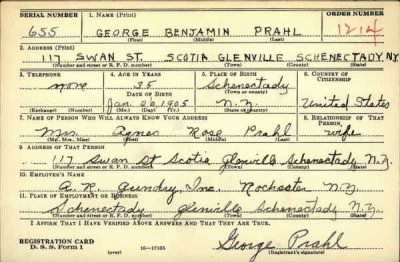 SERIAL NUMBER 1. NAME (Print) ORDER NUMBER
655 GEORGE BENJAMIN PRAHL 1214
(First) (Middle) (Last)
2. ADDRESS (Print)
117 SWAN ST. SCOTIA GLENVILLE SCHENECTADY N.Y.
(Number and street or R. F. D. number) (Town) (County) (State)
3. TELEPHONE 4. AGE IN YEARS 5. PLACE OF BIRTH 6. COUNTRY OF CITIZENSHIP
none 35 Schenectady
DATE OF BIRTH (Town or county)
Jan. 26, 1905 N.Y. United States
(Exchange) (Number) (Mo.) (Day) (Yr.) (State or country)
7. NAME OF PERSON WHO WILL ALWAYS KNOW YOUR ADDRESS 8. RELATIONSHIP OF THAT PERSON
Mrs. Agnes Rose Prahl wife
(Mr., Mrs., Miss) (First) (Middle) (Last)
9. ADDRESS OF THAT PERSON
117 Swan St Scotia Glenville Schenectady N.Y.
(Number and street or R. F. D. number) (Town) (County) (State)
10. EMPLOYER'S NAME
A. R. Gundry, Inc. Rochester N.Y.
11. PLACE OF EMPLOYMENT OR BUSINESS
Schenectady Glenville Schenectady N.Y.
(Number and street or R. F. D. number) (Town) (County) (State)
I AFFIRM THAT I HAVE VERIFIED ABOVE ANSWERS AND THAT THEY ARE TRUE.
REGISTRATION CARD George Prahl
D. S. S. Form 1 (over) (Registrant's signature)